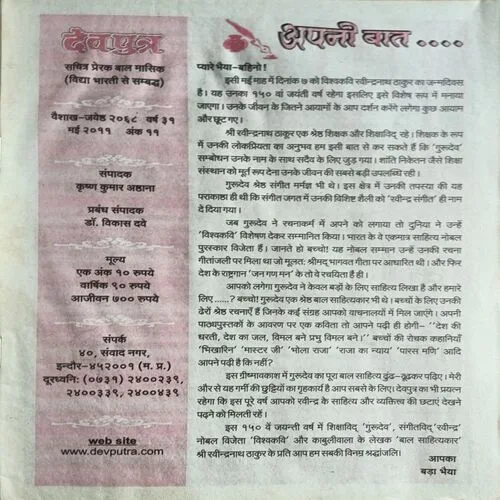 देवपुत्र
सचित्र प्रेरक बाल मासिक
(विद्या भारती से सम्बद्ध)
वैशाख-ज्येष्ठ २०६८ वर्ष ३१
मई २०११ अंक ११
संपादक
कृष्ण कुमार अष्ठाना
प्रबंध संपादक
डॉ. विकास दवे
मूल्य
एक अंक १० रुपये
वार्षिक ९० रुपये
आजीवन ७०० रुपये
संपर्क
४०, संवाद नगर,
इन्दौर-४५२००१ (म. प्र.)
दूरध्वनि: (०७३१) २४००२३९,
२४००३३९, २४००४३९
web site
www.devputra.com
अपनी बात ....
प्यारे भैया-बहिनो !
इसी मई माह में दिनांक ७ को विश्वकवि रवीन्द्रनाथ ठाकुर का जन्मदिवस
है। यह उनका १५० वां जयंती वर्ष रहेगा इसलिए इसे विशेष रूप में मनाया
जाएगा। उनके जीवन के जितने आयामों के आप दर्शन करेंगे लगेगा कुछ आयाम
और छूट गए।
श्री रवीन्द्रनाथ ठाकुर एक श्रेष्ठ शिक्षक और शिक्षाविद् रहे। शिक्षक के रूप
में उनकी लोकप्रियता का अनुभव हम इसी बात से कर सकते हैं कि 'गुरूदेव'
सम्बोधन उनके नाम के साथ सदैव के लिए जुड़ गया। शांति निकेतन जैसे शिक्षा
संस्थान को मूर्त रूप देना उनके जीवन की सबसे बड़ी उपलब्धि रही।
गुरूदेव श्रेष्ठ संगीत मर्मज्ञ भी थे। इस क्षेत्र में उनकी तपस्या की यह
पराकाष्ठा ही थी कि संगीत जगत में उनकी विशिष्ट शैली को 'रवीन्द्र संगीत' ही नाम
दे दिया गया।
जब गुरूदेव ने रचनाकर्म में अपने को लगाया तो दुनिया ने उन्हें
'विश्वकवि' विशेषण देकर सम्मानित किया। भारत के ये एकमात्र साहित्य नोबल
पुरस्कार विजेता हैं। जानते हो बच्चो! यह नोबल सम्मान उन्हें उनकी रचना
गीतांजली पर मिला था जो मूलत: श्रीमद् भागवत गीता पर आधारित थी। और फिर
देश के राष्ट्रगान 'जन गण मन' के तो वे रचयिता हैं ही।
आपको लगेगा गुरूदेव ने केवल बड़ों के लिए साहित्य लिखा है और हमारे
लिए ......? बच्चो! गुरूदेव एक श्रेष्ठ बाल साहित्यकार भी थे। बच्चों के लिए उनकी
ढेरों श्रेष्ठ रचनाएँ हैं जिनके कई संग्रह आपको वाचनालयों में मिल जाएंगे। अपनी
पाठ्यपुस्तकों के आवरण पर एक कविता तो आपने पढ़ी ही होगी- ''देश की
धरती, देश का जल, विमल बने प्रभु विमल बने।'' बच्चों की रोचक कहानियाँ
'भिखारिन' 'मास्टर जी' 'भोला राजा' 'राजा का न्याय' 'पारस मणि' आदि
आपने पढ़ी है कि नहीं?
इस ग्रीष्मावकाश में गुरूदेव का पूरा बाल साहित्य ढुंढ-ढूढकर पढ़िए। मेरी
और से यह गर्मी की छुट्टियों का गृहकार्य है आप सबके लिए। देवपुत्र का भी प्रयत्न
रहेगा कि इस पूरे वर्ष आपको रवीन्द्र के साहित्य और व्यक्तित्व की छटाएं देखने
पढ़ने को मिलती रहें।
इस १५० वें जयन्ती वर्ष में शिक्षाविद् 'गुरूदेव', संगीतविद् 'रवीन्द्र'
नोबल विजेता 'विश्वकवि' और काबुलीवाला के लेखक 'बाल साहित्यकार'
श्री रवीन्द्रनाथ ठाकुर के प्रति आप हम सबकी विनम्र श्रद्धांजलि।
आपका
बड़ा भैया